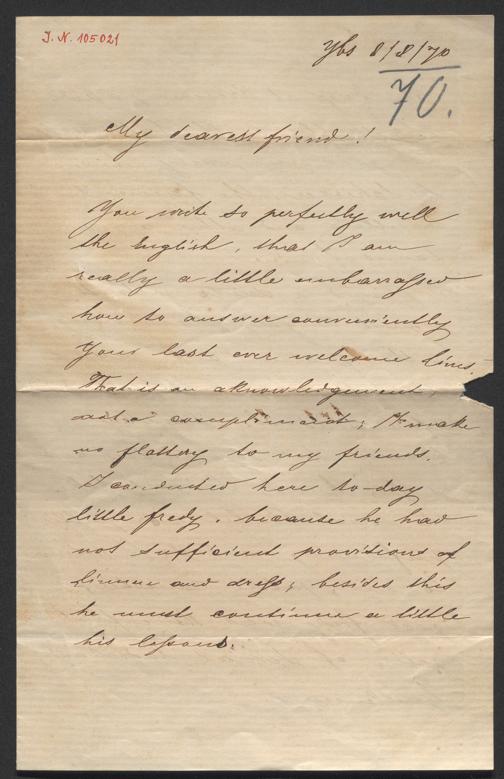 I. N. 105021
Ybs 8/8/70
70.
My dearest friend!
You write so perfectly well
the English, that I am
really a little embarrassed
how to answer conveniently
Your last ever welcome lines.
That is an aknowledgement,
not a compliment; I make
no flattery to my friends.
I conducted here to-day
little fredy, because he had
not sufficient provisions of
linnen and dress; besides this
he must continue a little
his lessons.